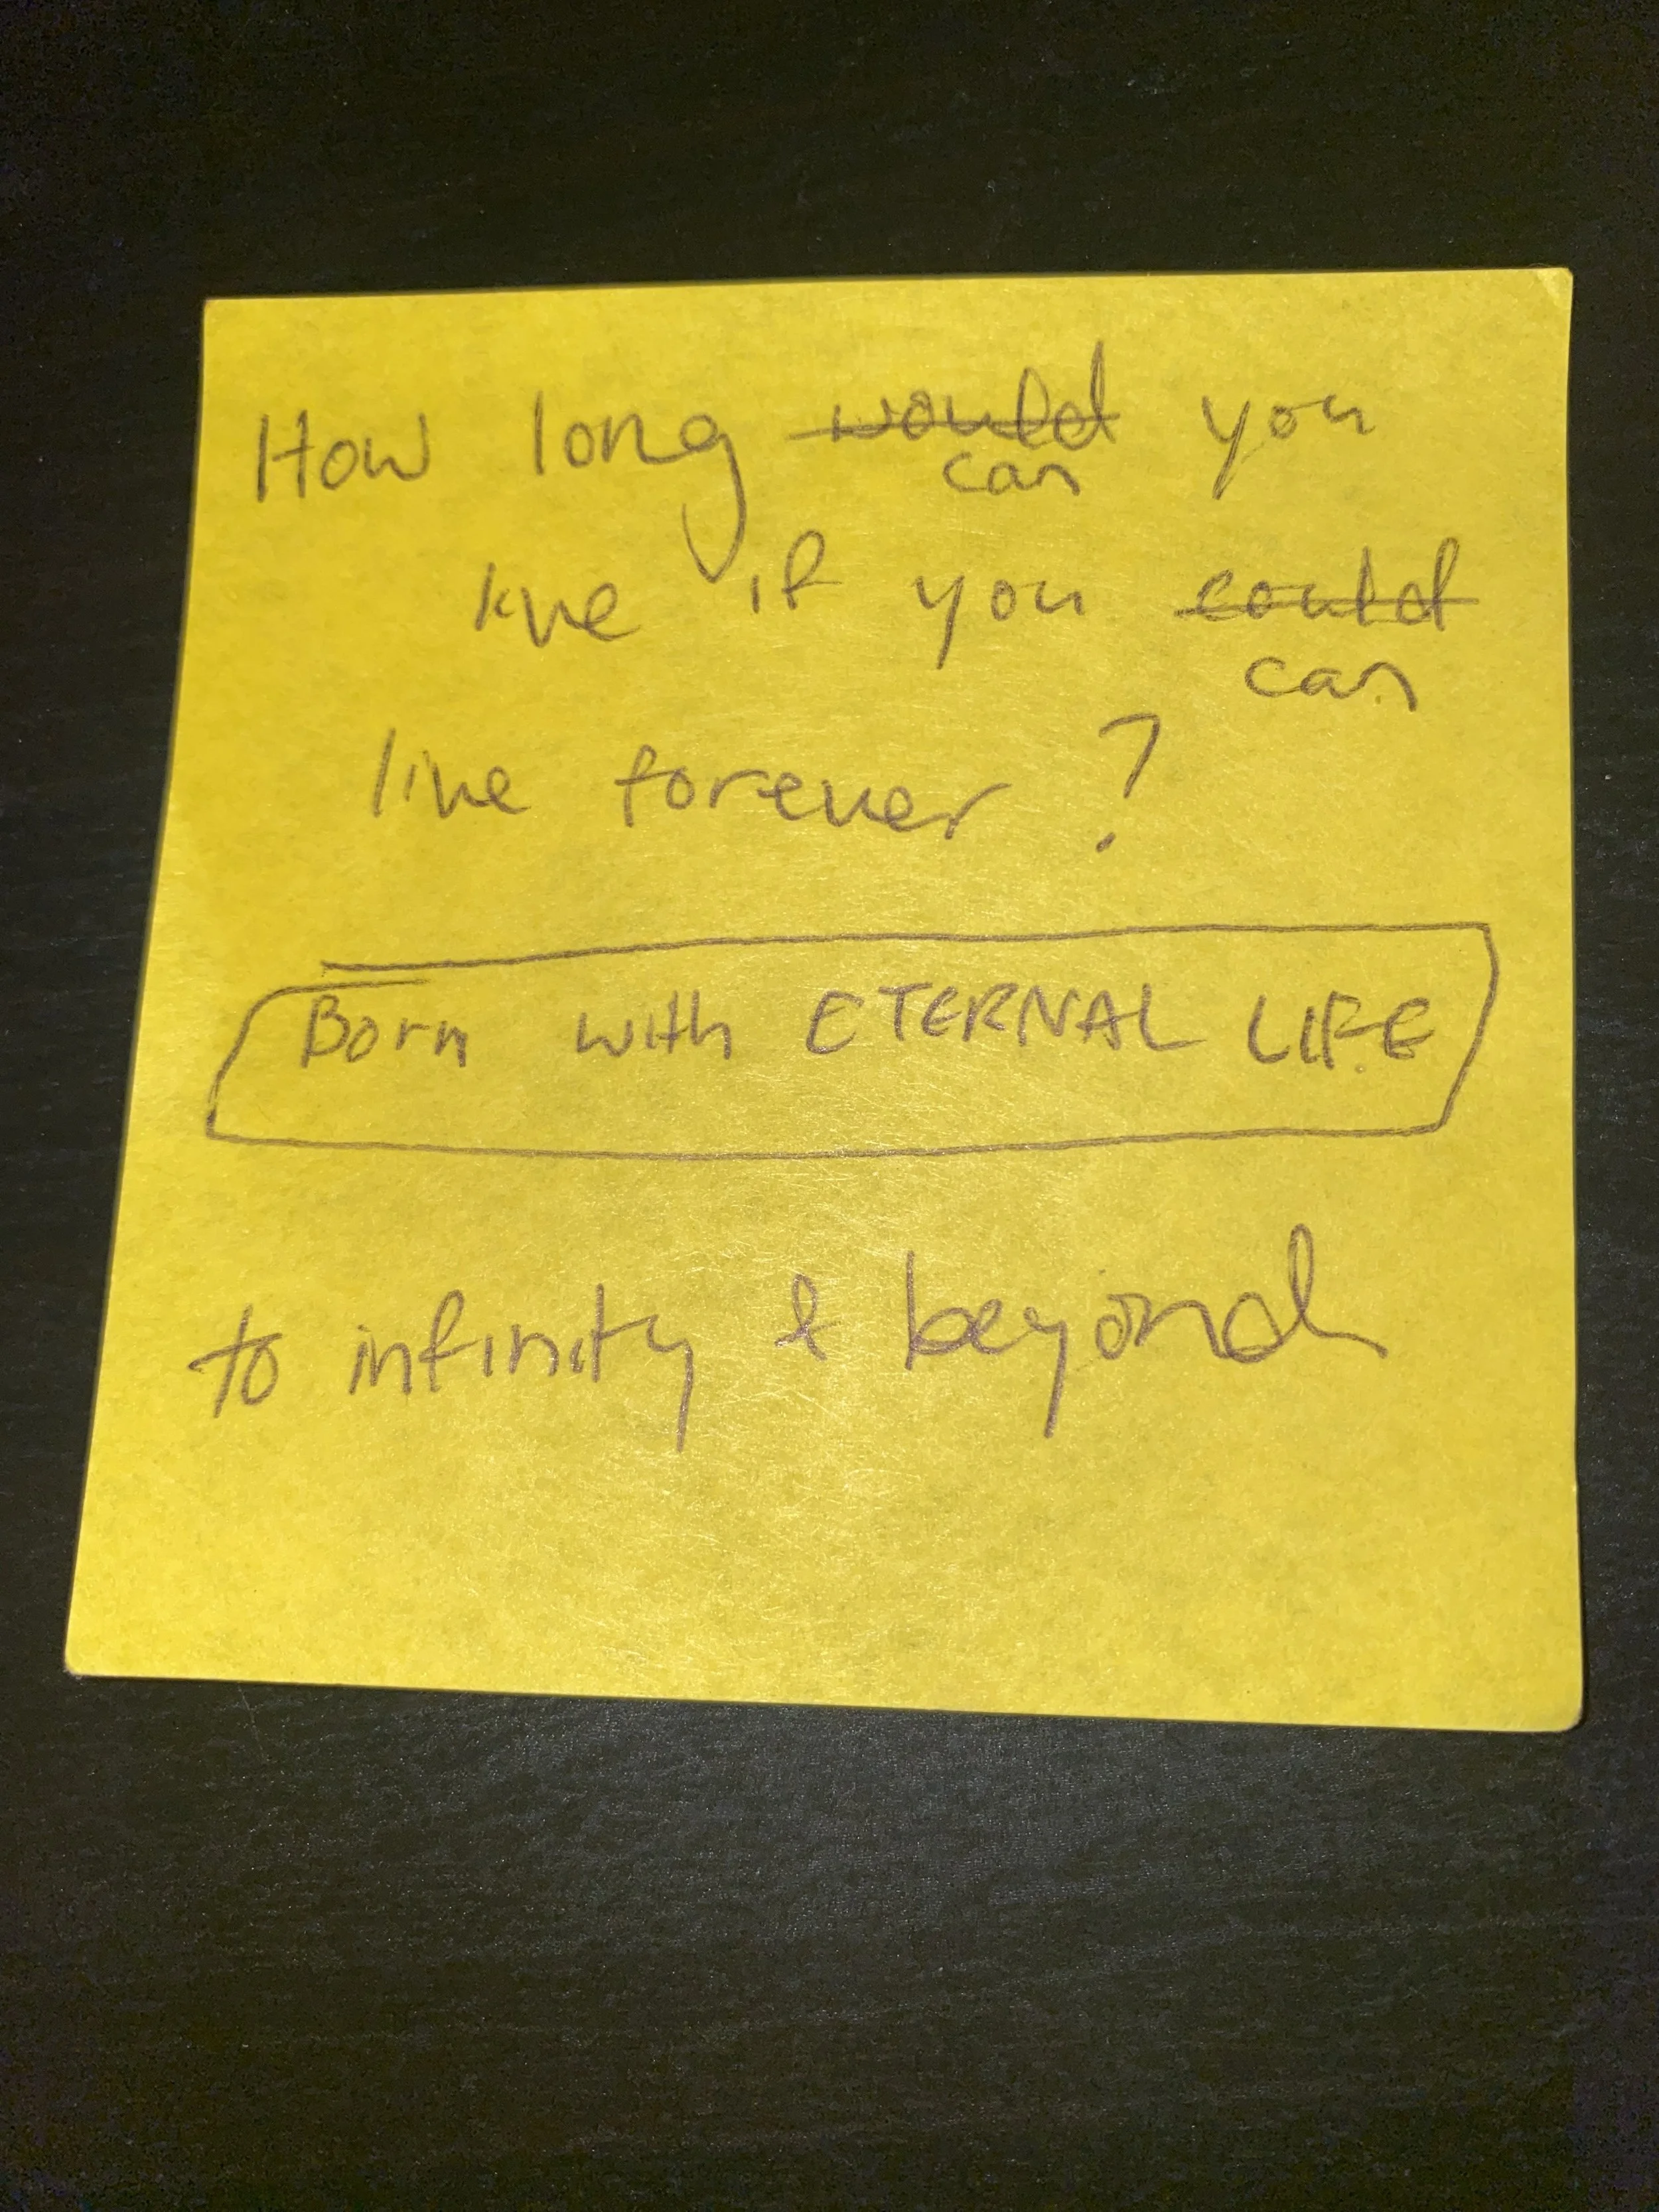 How long would you
can
live if you could
can
live forever?
Born with ETERNAL LIFE
to infinity & beyond